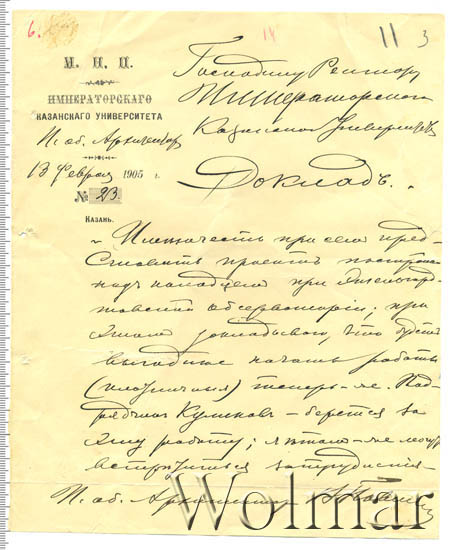 6.
14
11 3
М. Н. П.
ИМПЕРАТОРСКАГО
КАЗАНСКАГО УНИВЕРСИТЕТА
И. об. Архитектора
13 Февраля 1905 г.
№ 23
КАЗАНЬ.
Господину Ректору
Императорского
Казанского Университета
Докладъ.
Имею честь при семъ пред-
ставить проектъ
надъ при Энгельгард-
товской обсерваторіи; при
этомъ докладываю, что будетъ
выгоднее начать работы
теперь-же. Под-
рядчикъ Куликовъ - берется за
эту работу; летомъ-же могутъ
встретиться затруднія-
И. об. Архитектора
Wolmar